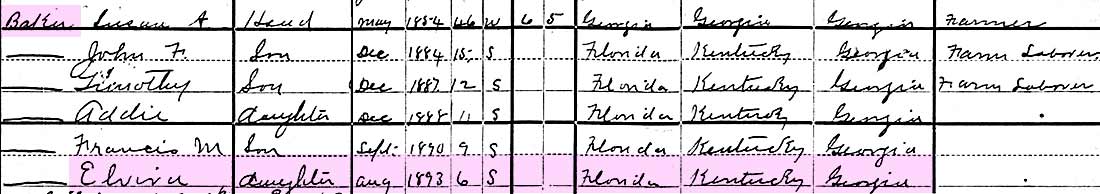 Baker Susan A Head May 1854 46 W 6 5 Georgia Georgia Georgia Farmer
John F. Son Dec 1884 15 S Florida Kentucky Georgia Farm Laborer
Timothy Son Dec 1887 12 S Florida Kentucky Georgia Farm Laborer
Addie Daughter Dec 1888 11 S Florida Kentucky Georgia
Francis M Son Sept. 1890 9 S Florida Kentucky Georgia
Elvira daughter aug 1893 6 S Florida Kentucky Georgia